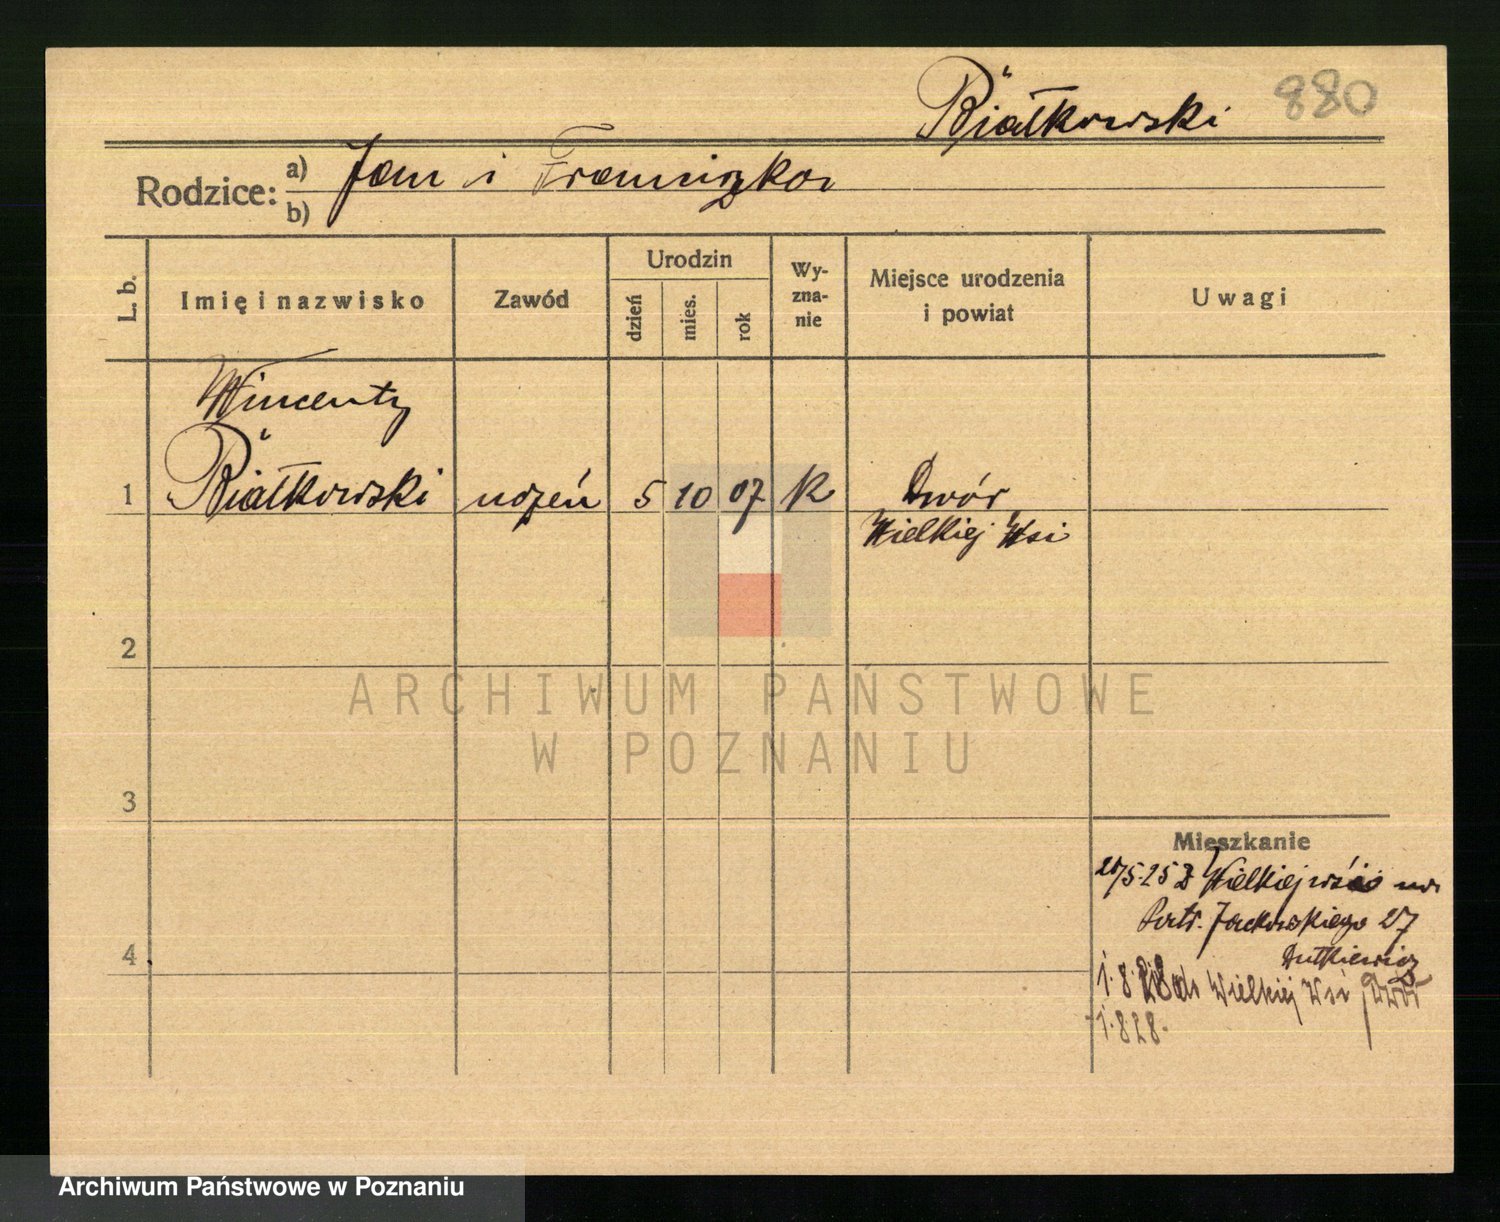 Białkowski 880
Rodzice: a) Jan i Franciszka
b)
L. b. Imię i nazwisko Zawód Urodzin dzień mies. rok Wy-zna-nie Miejsce urodzenia i powiat Uwagi
Wincenty
1 Białkowski uczeń 5 10 07 k Dwór
Wielkiej Wsi
2
ARCHIWUM PAŃSTWOWE
W POZNANIU
3
Mieszkanie
5.25 z Wielkiejwsi
Jackowskiego 27
4 Dutkiewicz
1.8.28 do Wielkiej Wsi
1.8 28.
Archiwum Państwowe w Poznaniu